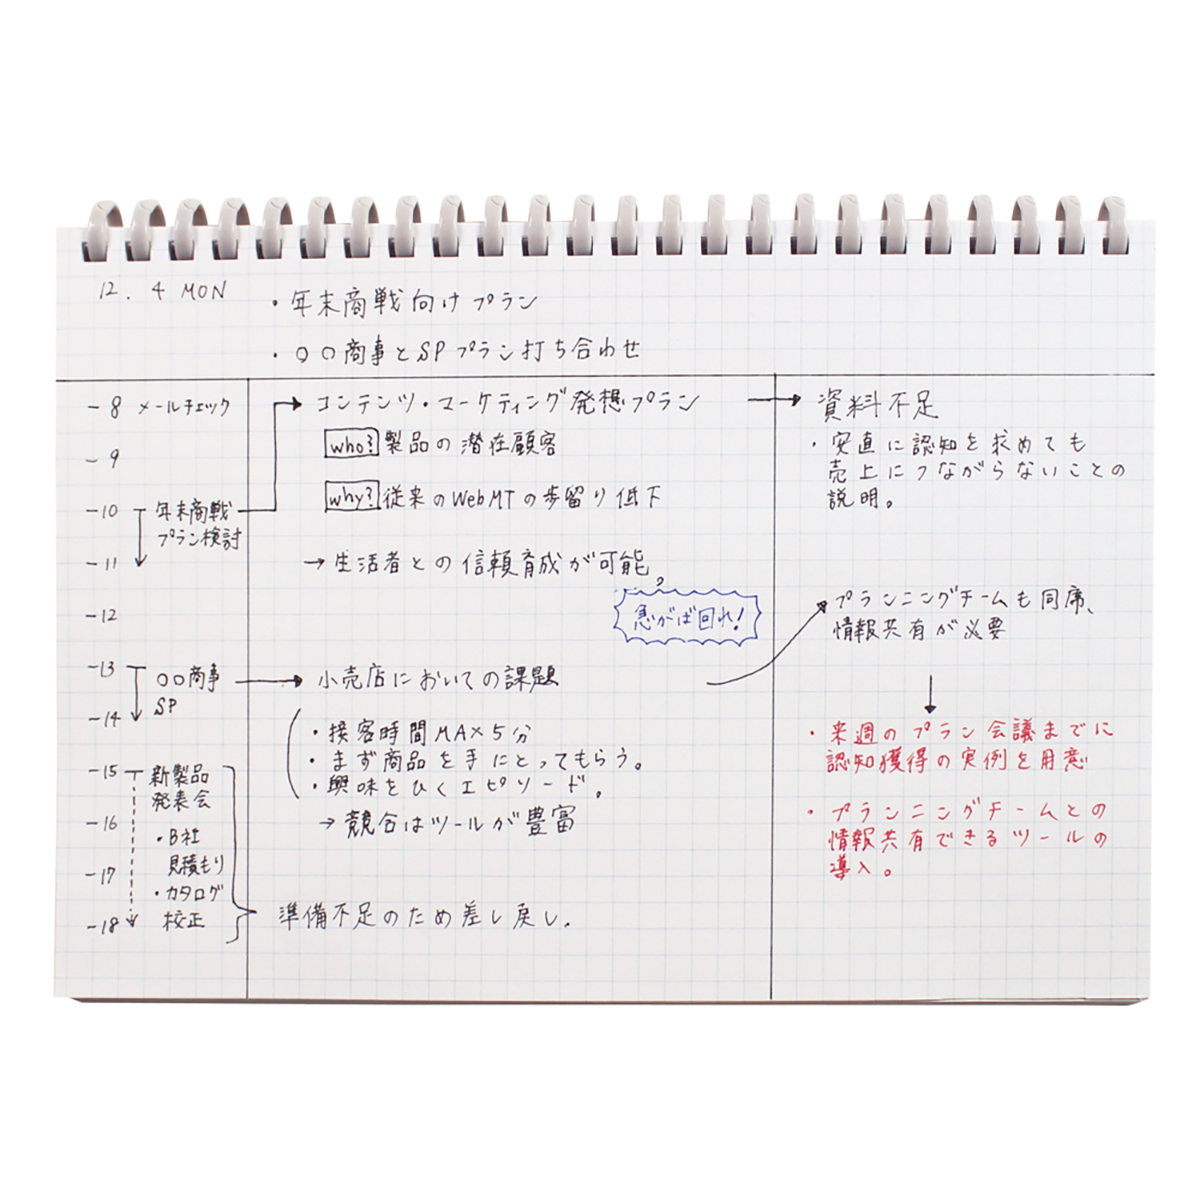 12. 4 MON
・年末商戦向けプラン
・〇〇商事とSPプラン打ち合わせ
-8 メールチェック
-9
-10 年末商戦
プラン検討
-11
-12
-13 〇〇商事
SP
-14
-15 新製品
発表会
-16 ・B社
見積もり
-17 ・カタログ
校正
-18
→ コンテンツ・マーケティング発想プラン
who? 製品の潜在顧客
why? 従来のWebMTの歩留り低下
→ 生活者との信頼育成が可能。
急がば回れ!
→ 小売店においての課題
・接客時間MAX5分
・まず商品を手にとってもらう。
・興味をひくエピソード。
→ 競合はツールが豊富
準備不足のため差し戻し。
→ 資料不足
・安直に認知を求めても
売上につながらないことの
説明。
プランニングチームも同席、
情報共有が必要
↓
・来週のプラン会議までに
認知獲得の実例を用意
・プランニングチームとの
情報共有できるツールの
導入。